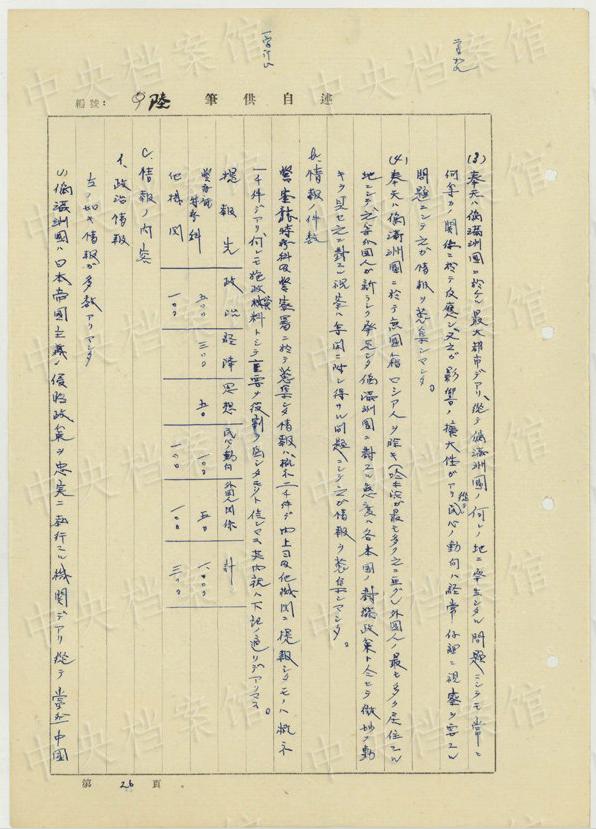 編號:
陸
筆供自述
(3) 奉天ハ偽滿洲國ニ於ケル最大都市デアリ、從テ偽滿洲國ノ何レノ地ニ発生シタル問題ニシテモ常ニ
何等カノ関係ニ於テ反應シ又ハ影響ノ擴大性ガアリ民心ノ動向ハ経常仔細ニ視察ヲ要スル
問題ニシテ之ガ情報ヲ蒐集シマシタ。
(4) 奉天ハ偽滿洲國ニ於テ無國籍ロシア人ヲ除キ(哈爾浜ガ最モ多ク之ニ亜グ)外國人ノ最モ多ク居住スル
地ニシテ之等外國人ガ
偽滿洲國ニ對スル態度ハ各本國ノ對滿政策ト合セテ微妙ナ動
キヲ見セ之ニ對スル視察ハ
問題ニシテ之ガ情報ヲ蒐集シマシタ。
b、情報ノ件数
警察署ニ於テ蒐集シタ情報ハ概ネ二千件デ内上司及他機関ニ提報シタモノハ概ネ
一千件デアリ、何レモ施政資料トシテ重要ナ役割ヲ
信ジマス 其内訳ハ下記ノ通リデアリマス。
提報先 政治 経済 思想 民心ノ動向 外國人関係 計
特務科 五〇〇 三〇〇 五〇 一〇〇 五〇 一、〇〇〇
他機関 一〇〇 一〇〇 一〇〇 三〇〇
c、情報ノ内容
イ、政治情報
左ノ如キ情報ガ多数アリマシタ
(1) 偽滿洲國ハ日本帝國主義ノ侵略政策ヲ忠実ニ執行スル機関デアリ 從テ 中國
第 26 頁
中央档案馆